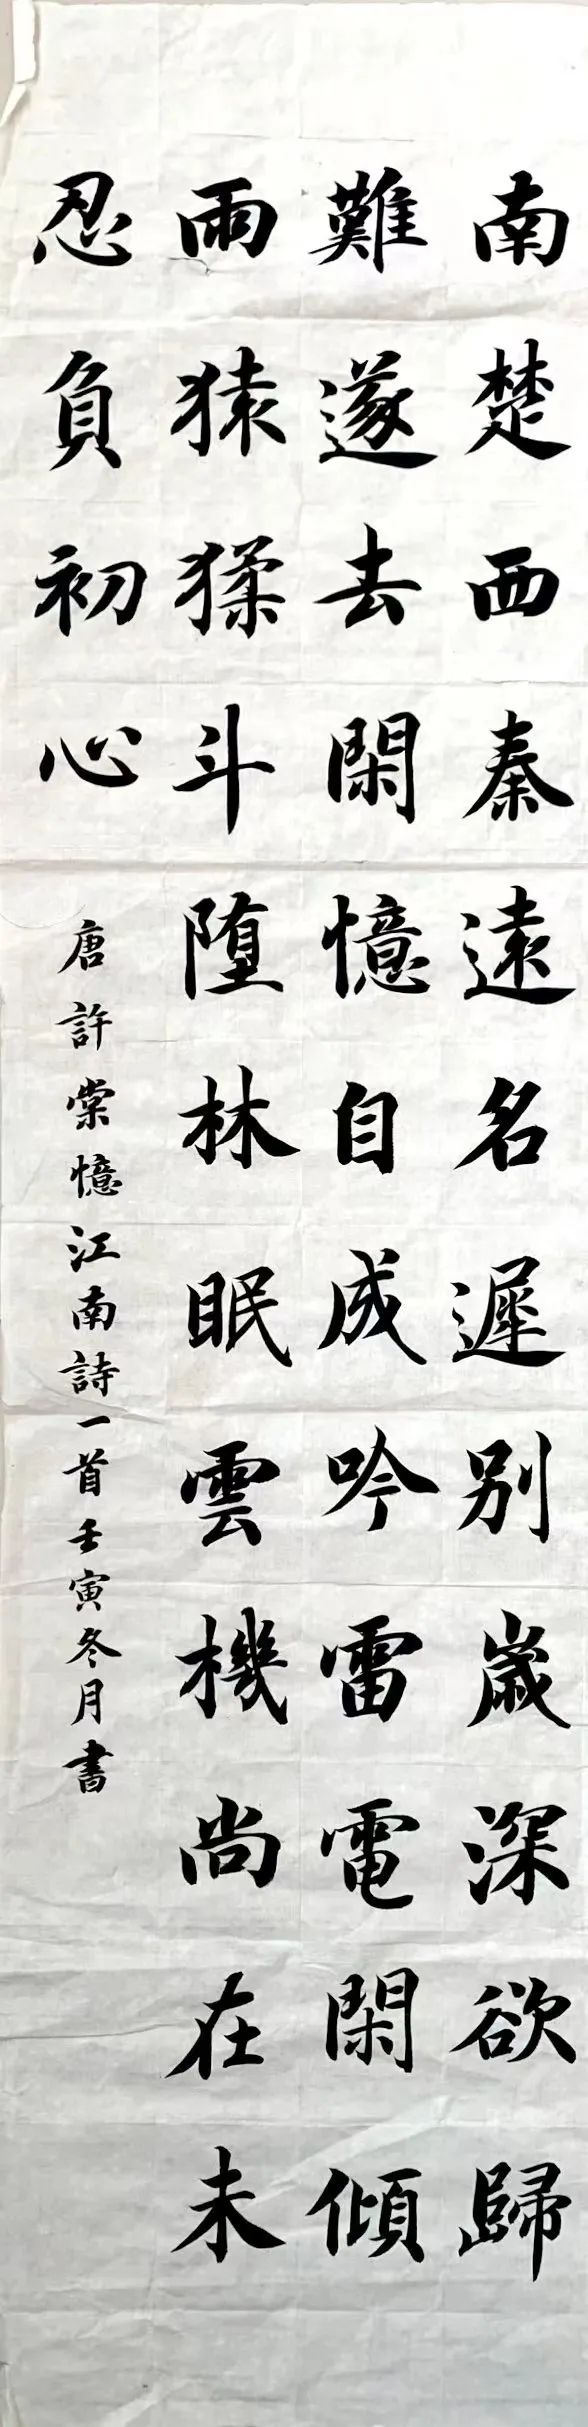 南楚西秦遠名遲別歲深欲歸
難遂去閑憶自成吟雷電閑傾
雨猿猱斗墮林眠雲機尚在未
忍負初心
唐許棠憶江南詩一首壬寅冬月書